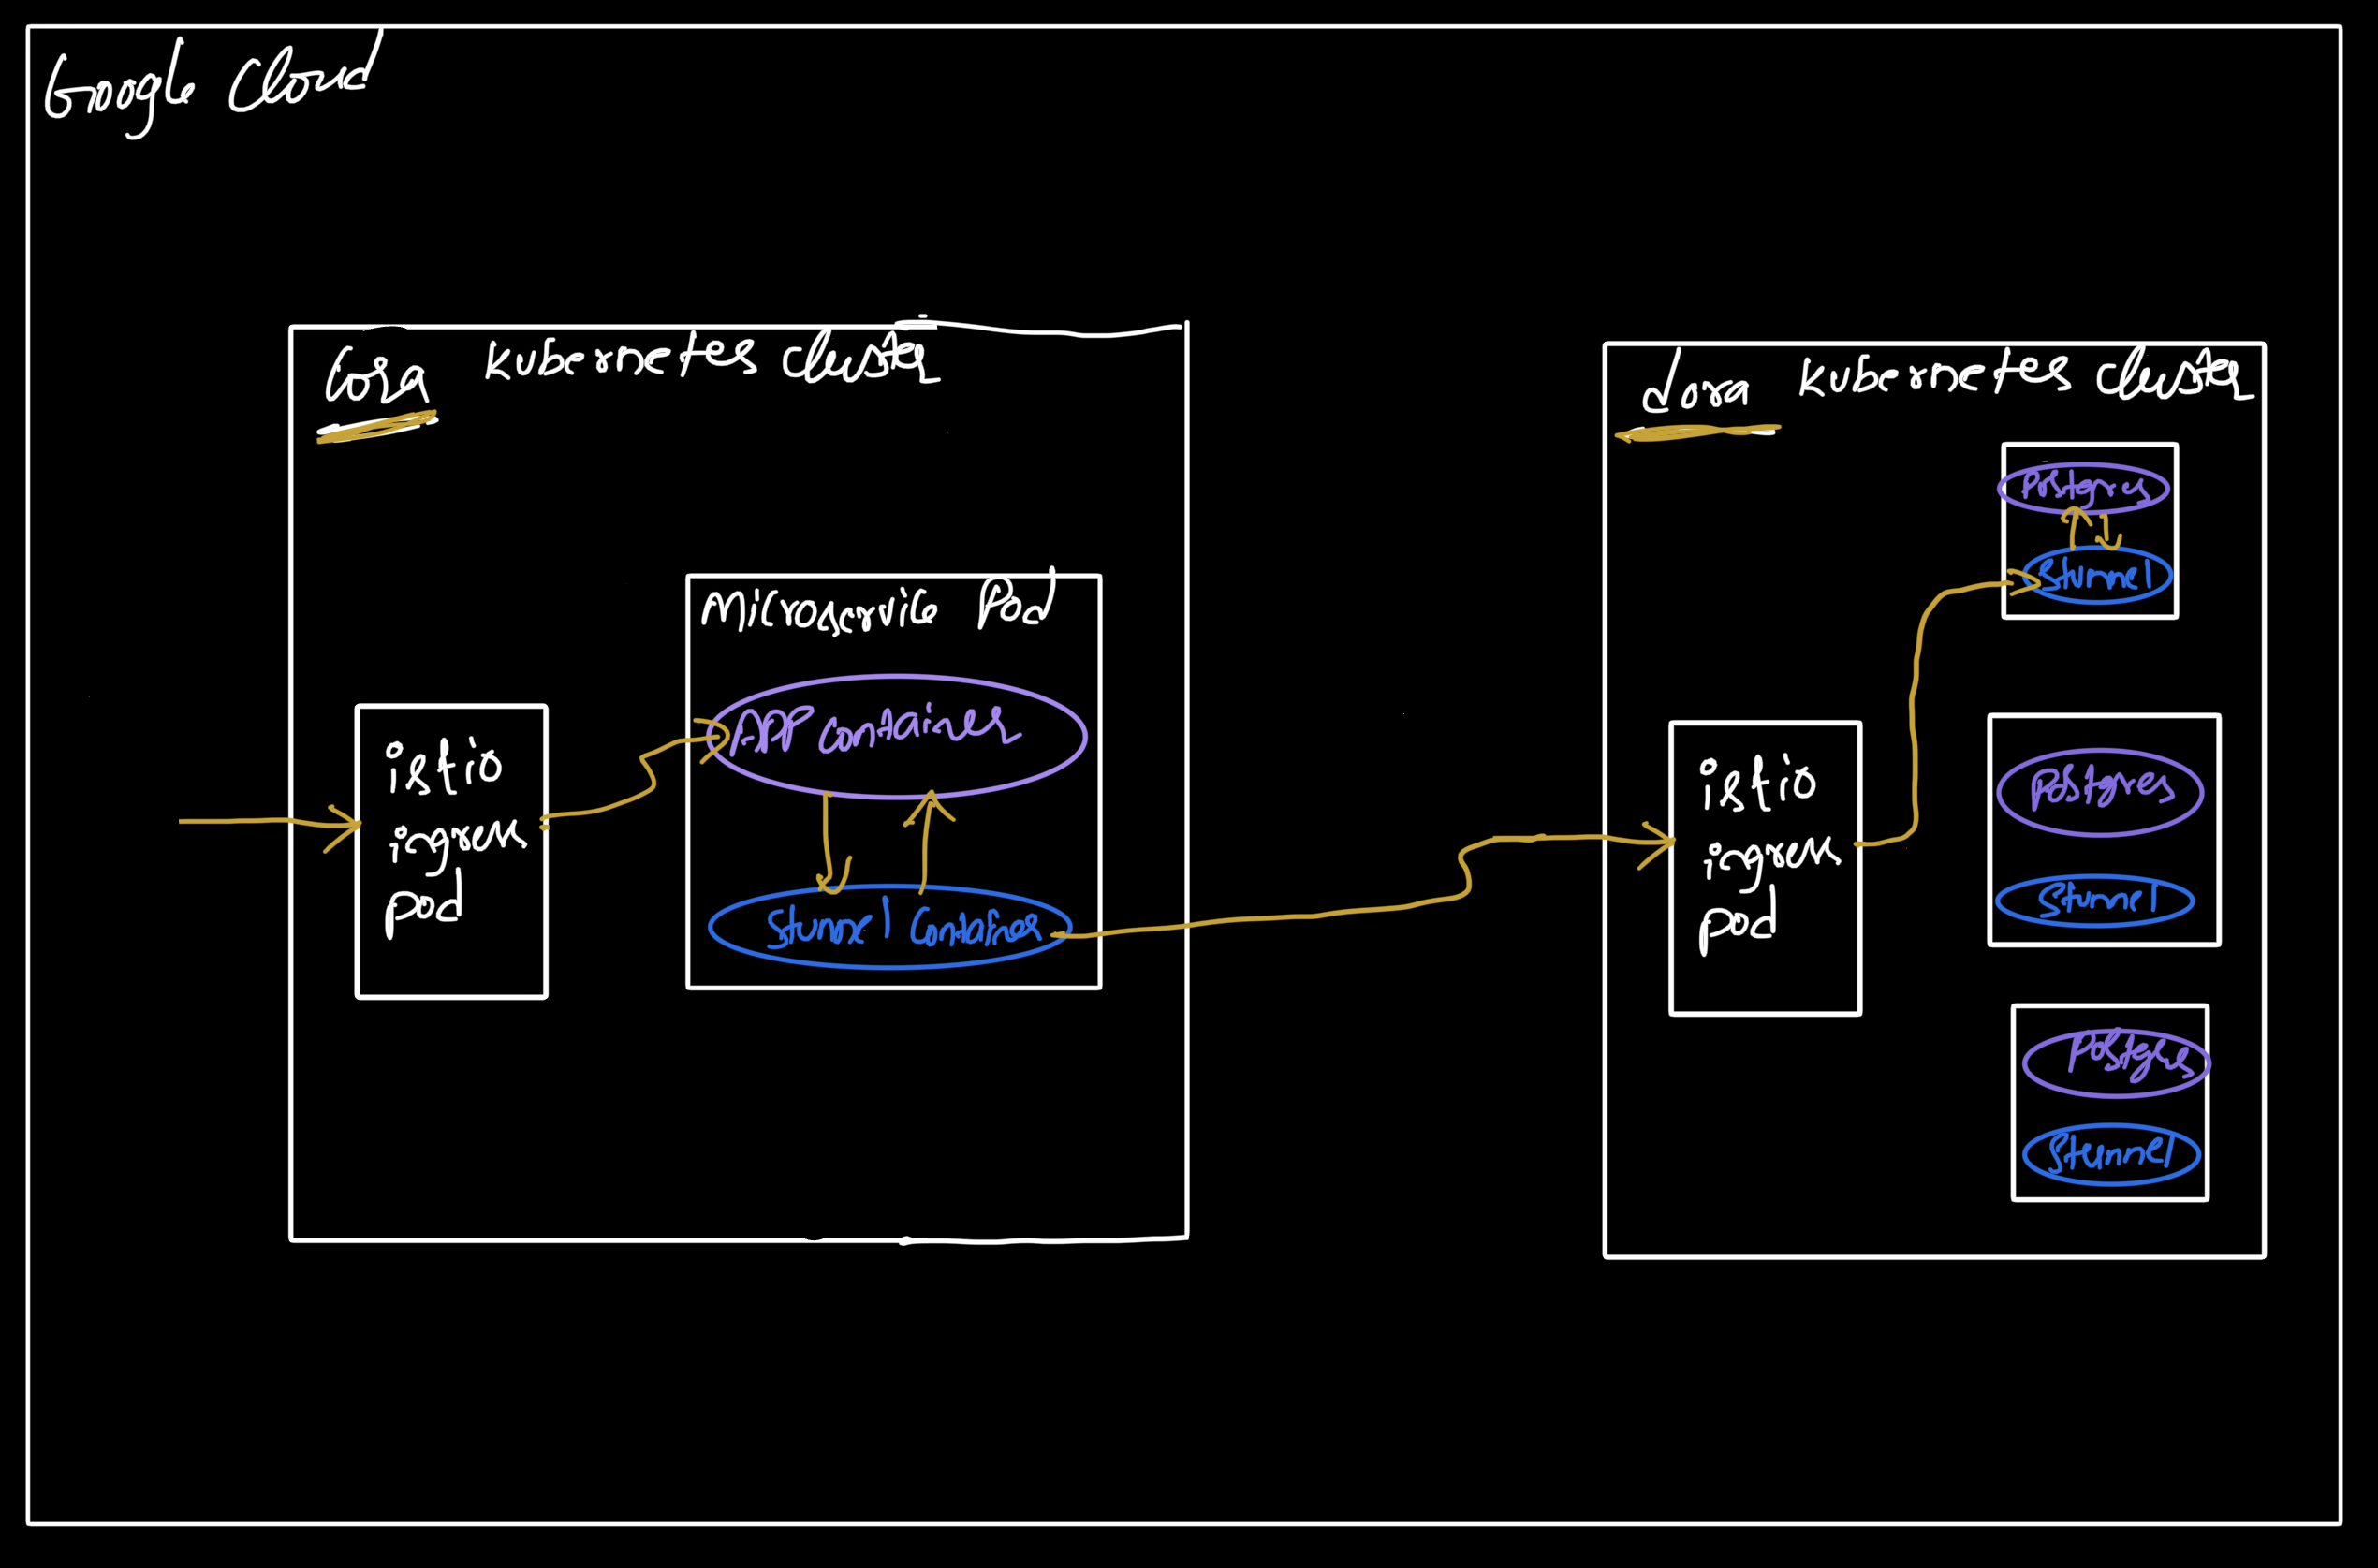 Google Cloud
Cora Kubernetes cluster
Microservice Pod
APP Container
Stunnel Container
istio
ingress
pod
dora Kubernetes cluster
istio
ingress
pod
Postgres
Stunnel
Postgres
Stunnel
Postgres
Stunnel